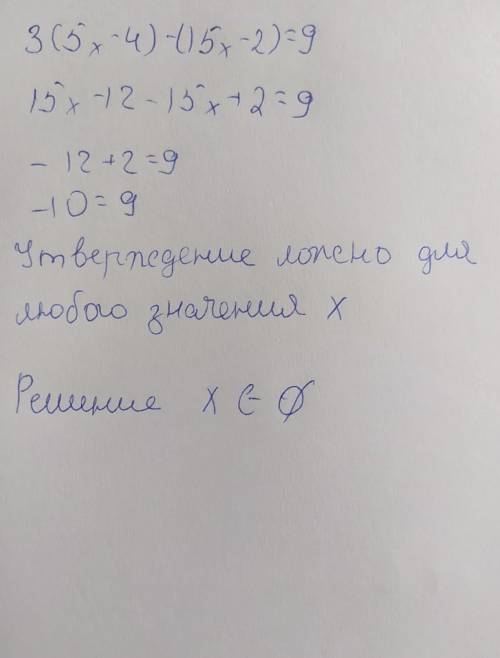 3(5x-4)-(15x-2)=9
15x-12-15x+2=9
-12+2=9
-10=9
Утверждение ложно для
любого значения x
Решение x ∈ ∅